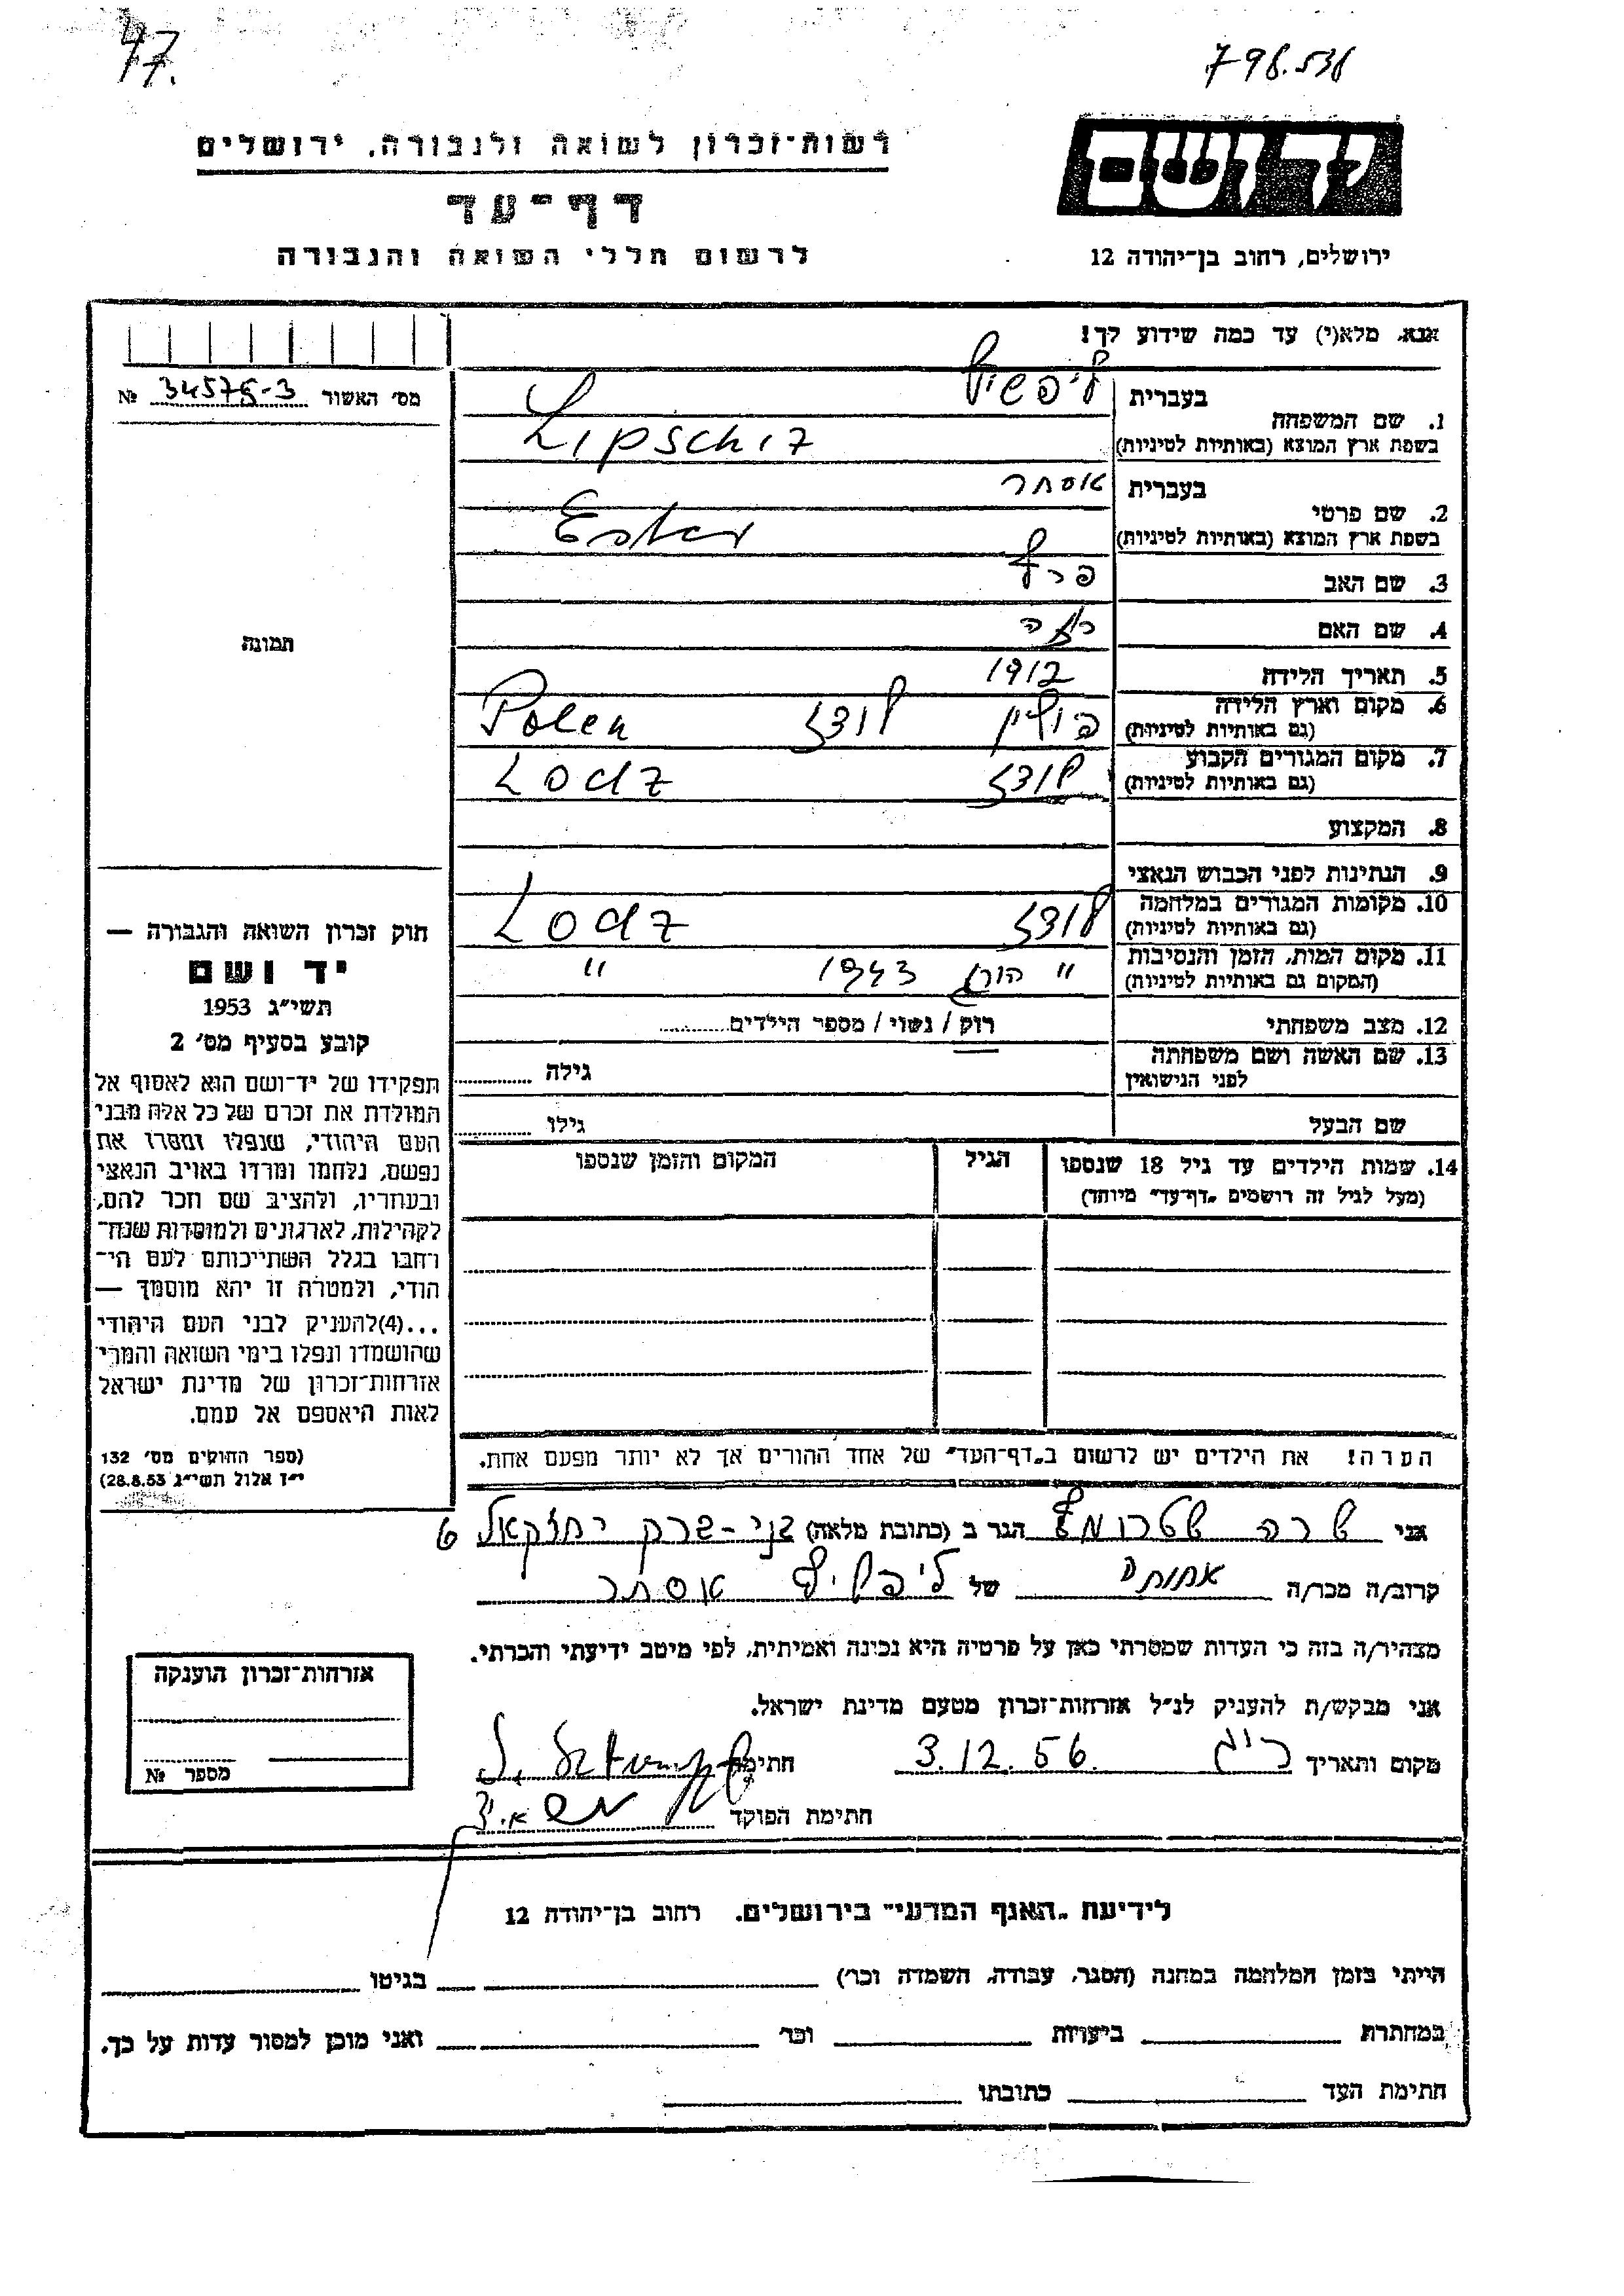 47.
798.538
רשות־זכרון לשואה ולגבורה, ירושלים
דף־עד
לרשום חללי השואה והגבורה
יד ושם
ירושלים, רחוב בן־יהודה 12
אנא, מלא(י) עד כמה שידוע לך!
מס׳ האשור 34575-3 №
תמונה
1. שם המשפחה
בעברית ליפשיץ
בשפת ארץ המוצא (באותיות לטיניות) Lipschiz
2. שם פרטי
בעברית אסתר
בשפת ארץ המוצא (באותיות לטיניות) Ester
3. שם האב
4. שם האם
5. תאריך הלידה 1912
6. מקום וארץ הלידה פולין לודז Polen
(גם באותיות לטיניות)
7. מקום המגורים הקבוע לודז Lodz
(גם באותיות לטיניות)
8. המקצוע
9. הנתינות לפני הכבוש הנאצי
10. מקומות המגורים במלחמה לודז Lodz
(גם באותיות לטיניות)
11. מקום המות, הזמן והנסיבות " 1943 "
(המקום גם באותיות לטיניות)
12. מצב משפחתי רוק / נשוי / מספר הילדים
13. שם האשה ושם משפחתה
לפני הנישואין גילה
שם הבעל גילו
14. שמות הילדים עד גיל 18 שנספו הגיל המקום והזמן שנספו
(מעל לגיל זה רושמים „דף־עד״ מיוחד)
הערה! את הילדים יש לרשום ב„דף־העד״ של אחד ההורים אך לא יותר מפעם אחת.
חוק זכרון השואה והגבורה —
יד ושם
תשי״ג 1953
קובע בסעיף מס׳ 2
תפקידו של יד־ושם הוא לאסוף אל
המולדת את זכרם של כל אלה מבני
העם היהודי, שנפלו ומסרו את
נפשם, נלחמו ומרדו באויב הנאצי
ובעוזריו, ולהציב שם וזכר להם,
לקהילות, לארגונים ולמוסדות שנח־
רחבו בגלל השתייכותם לעם הי־
הודי, ולמטרה זו יהא מוסמך —
...(4)להעניק לבני העם היהודי
שהושמדו ונפלו בימי השואה והמרי
אזרחות־זכרון של מדינת ישראל
לאות היאספם אל עמם.
(ספר החוקים מס׳ 132
י״ז אלול תשי״ג 28.8.53)
אני שרה הגר ב (כתובת מלאה) בני-ברק יחזקאל 6
קרוב/ה מכר/ה אחותה של ליפשיץ אסתר
מצהיר/ה בזה כי העדות שמסרתי כאן על פרטיה היא נכונה ואמיתית, לפי מיטב ידיעתי והכרתי.
אני מבקש/ת להעניק לנ״ל אזרחות־זכרון מטעם מדינת ישראל.
מקום ותאריך 3.12.56 חתימה
חתימת הפוקד
אזרחות־זכרון הוענקה
מספר №
לידיעת „האגף המדעי״ בירושלים. רחוב בן־יהודה 12
הייתי בזמן המלחמה במחנה (הסגר, עבודה, השמדה וכו׳) בגיטו
במחתרת ביערות וכו׳ ואני מוכן למסור עדות על כך.
חתימת העד כתובתו